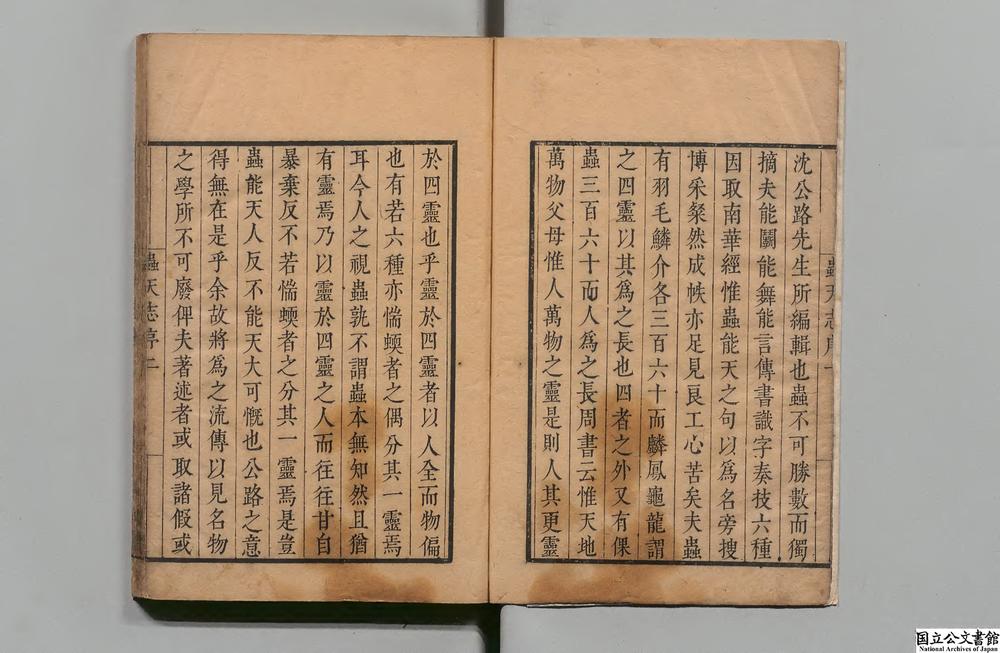 沈公路先生所編輯也蟲不可勝數而獨
摘夫能鬭能舞能言傳書識字奏技六種
因取南華經惟蟲能天之句以爲名旁搜
博采粲然成帙亦足見良工心苦矣夫蟲
有羽毛鱗介各三百六十而麟鳳龜龍謂
之四靈以其爲之長也四者之外又有倮
蟲三百六十而人爲之長周書云惟天地
萬物父母惟人萬物之靈是則人其更靈
於四靈也乎靈於四靈者以人全而物偏
也有若六種亦惴蝡者之偶分其一靈焉
耳今人之視蟲孰不謂蟲本無知然且猶
有靈焉乃以靈於四靈之人而往往甘自
暴棄反不若惴蝡者之分其一靈焉是豈
蟲能天人反不能天大可慨也公路之意
得無在是乎余故將爲之流傳以見名物
之學所不可廢俾夫著述者或取諸假或
蟲天志序二
国立公文書館
National Archives of Japan